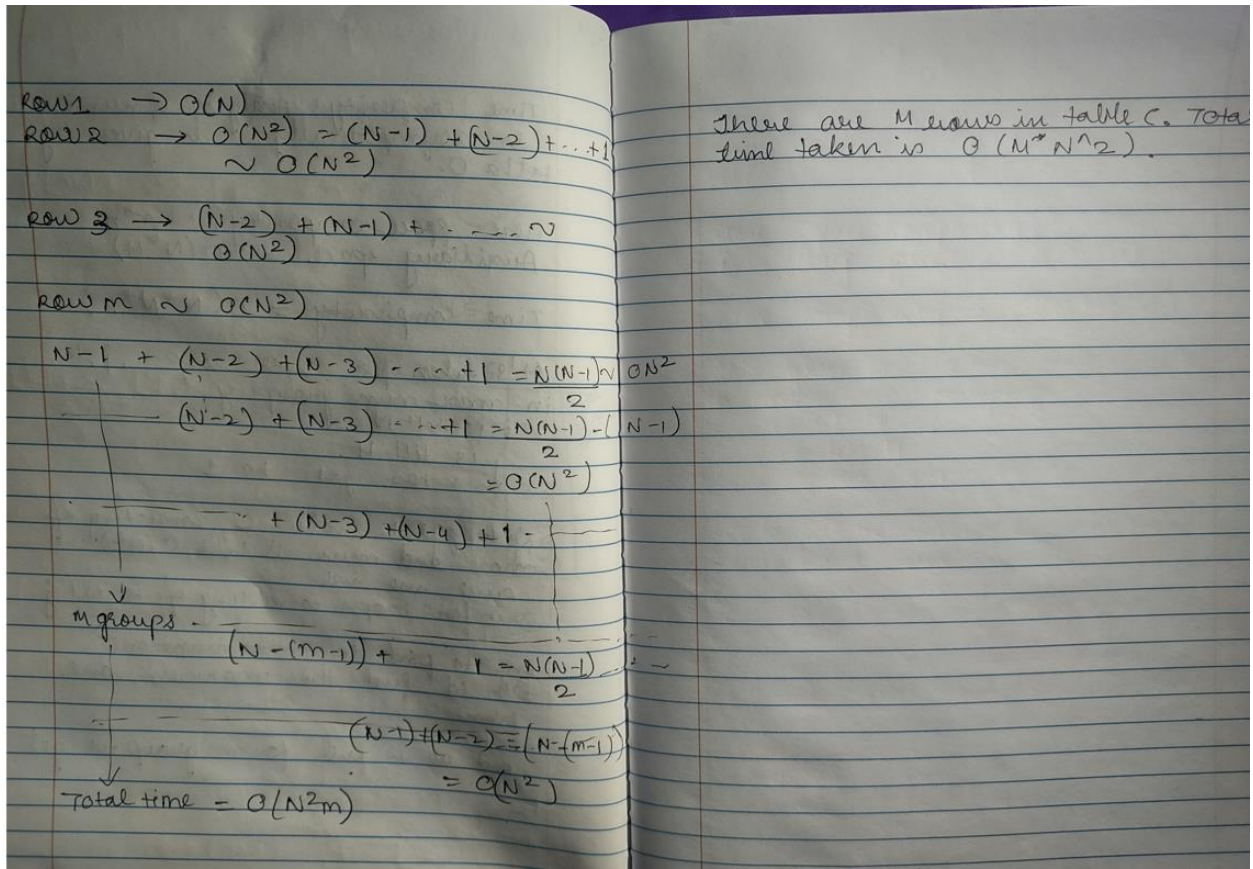 Row1 → O(N)
Row 2 → O(N²) = (N-1) + (N-2) + ... +1
~ O(N²)
Row 3 → (N-2) + (N-1) + - ---- ~
O(N²)
Row m ~ O(N²)
N-1 + (N-2) + (N-3) - - - +1 = N(N-1)/2 ~ ON²
(N-2) + (N-3) - - - +1 = N(N-1)/2 - (N-1)
= O(N²)
+ (N-3) + (N-4) + 1 -
M groups -
(N - (m-1)) + 1 = N(N-1)/2 - - -
(N-1) + (N-2) = = (N-(m-1))
= O(N²)
Total time = O(N²m)
There are M rows in table C. Total
time taken is O (M* N^2).